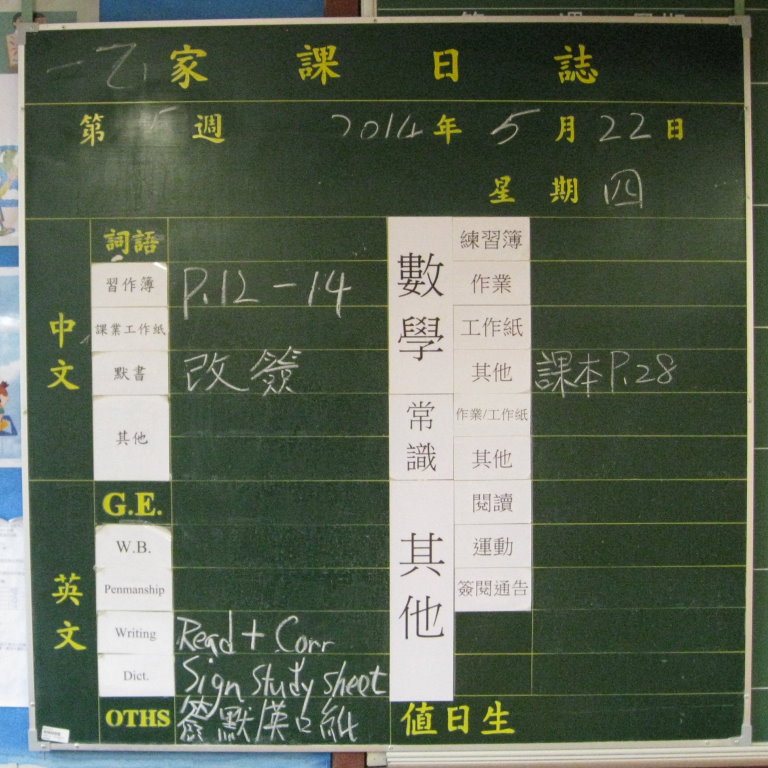 一乙 家課日誌
第 5 週 2014年 5月22日
星期四
中文
詞語
習作簿 P.12-14
課業工作紙
默書 改簽
其他
英文
G.E.
W.B.
Penmanship
Writing Read + Corr
Dict. Sign study sheet
OTHS 簽默漢
數學
練習簿
作業
工作紙
其他 課本P.28
常識
作業/工作紙
其他
其他
閱讀
運動
簽閱通告
值日生